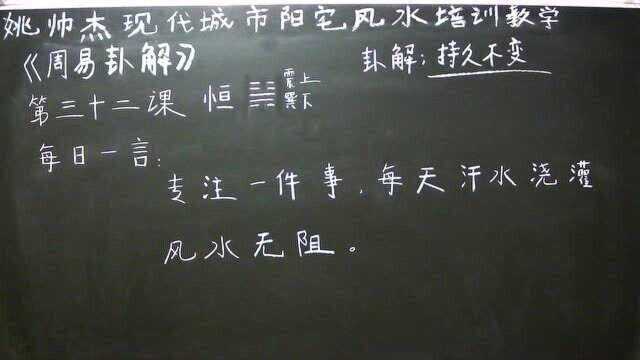 姚帅杰现代城市阳宅风水培训教学
《周易卦解》 卦解：持久不变
第三十二课 恒 震上
巽下
每日一言：
专注一件事，每天汗水浇灌
风水无阻。